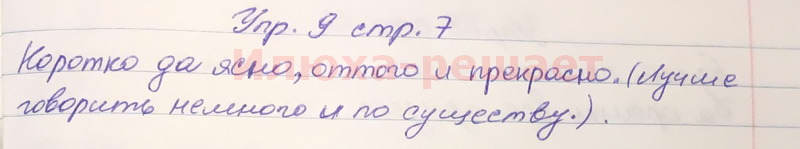 Упр. 9 стр. 7
Илюха-решает
Коротко да ясно, оттого и прекрасно. (Лучше
говорить немного и по существу.).